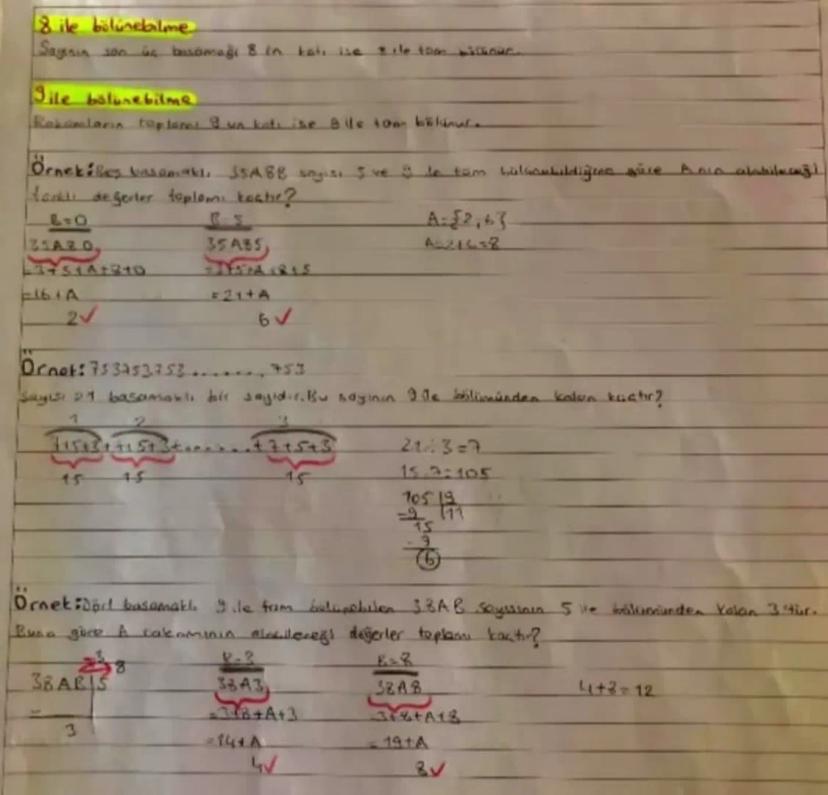 8 ile bölünebilme
Sayının son üç basamağı 8 in katı ise 8 ile tam bölünür.
9 ile bölünebilme
Rakamların toplamı 9 un katı ise 9 ile tam bölünür.
Örnek: Beş basamaklı 35A8B sayısı 5 ve 9 ile tam bölünebildiğine göre A nın alabileceği
farklı değerler toplamı kaçtır?
B=0 B=5 A={2,6}
35A80 35A85 A=2+6=8
=3+5+A+8+0 =3+5+A+8+5
=16+A =21+A
2✓ 6✓
Örnek: 753753753........753
sayısı 21 basamaklı bir sayıdır. Bu sayının 9 ile bölümünden kalan kaçtır?
1 2 3
7+5+3+7+5+3+.......+7+5+3 21÷3=7
15 15 15 15.7=105
105 | 9
-9 11
15
-9
6
Örnek: Dört basamaklı 9 ile tam bölünebilen 38AB sayısının 5 ile bölümünden kalan 3'tür.
Buna göre A rakamının alabileceği değerler toplamı kaçtır?
3 8 B=3 B=8
38AB | 5 38A3 38A8 4+8=12
- =3+8+A+3 =3+8+A+8
3 =14+A =19+A
4✓ 8✓